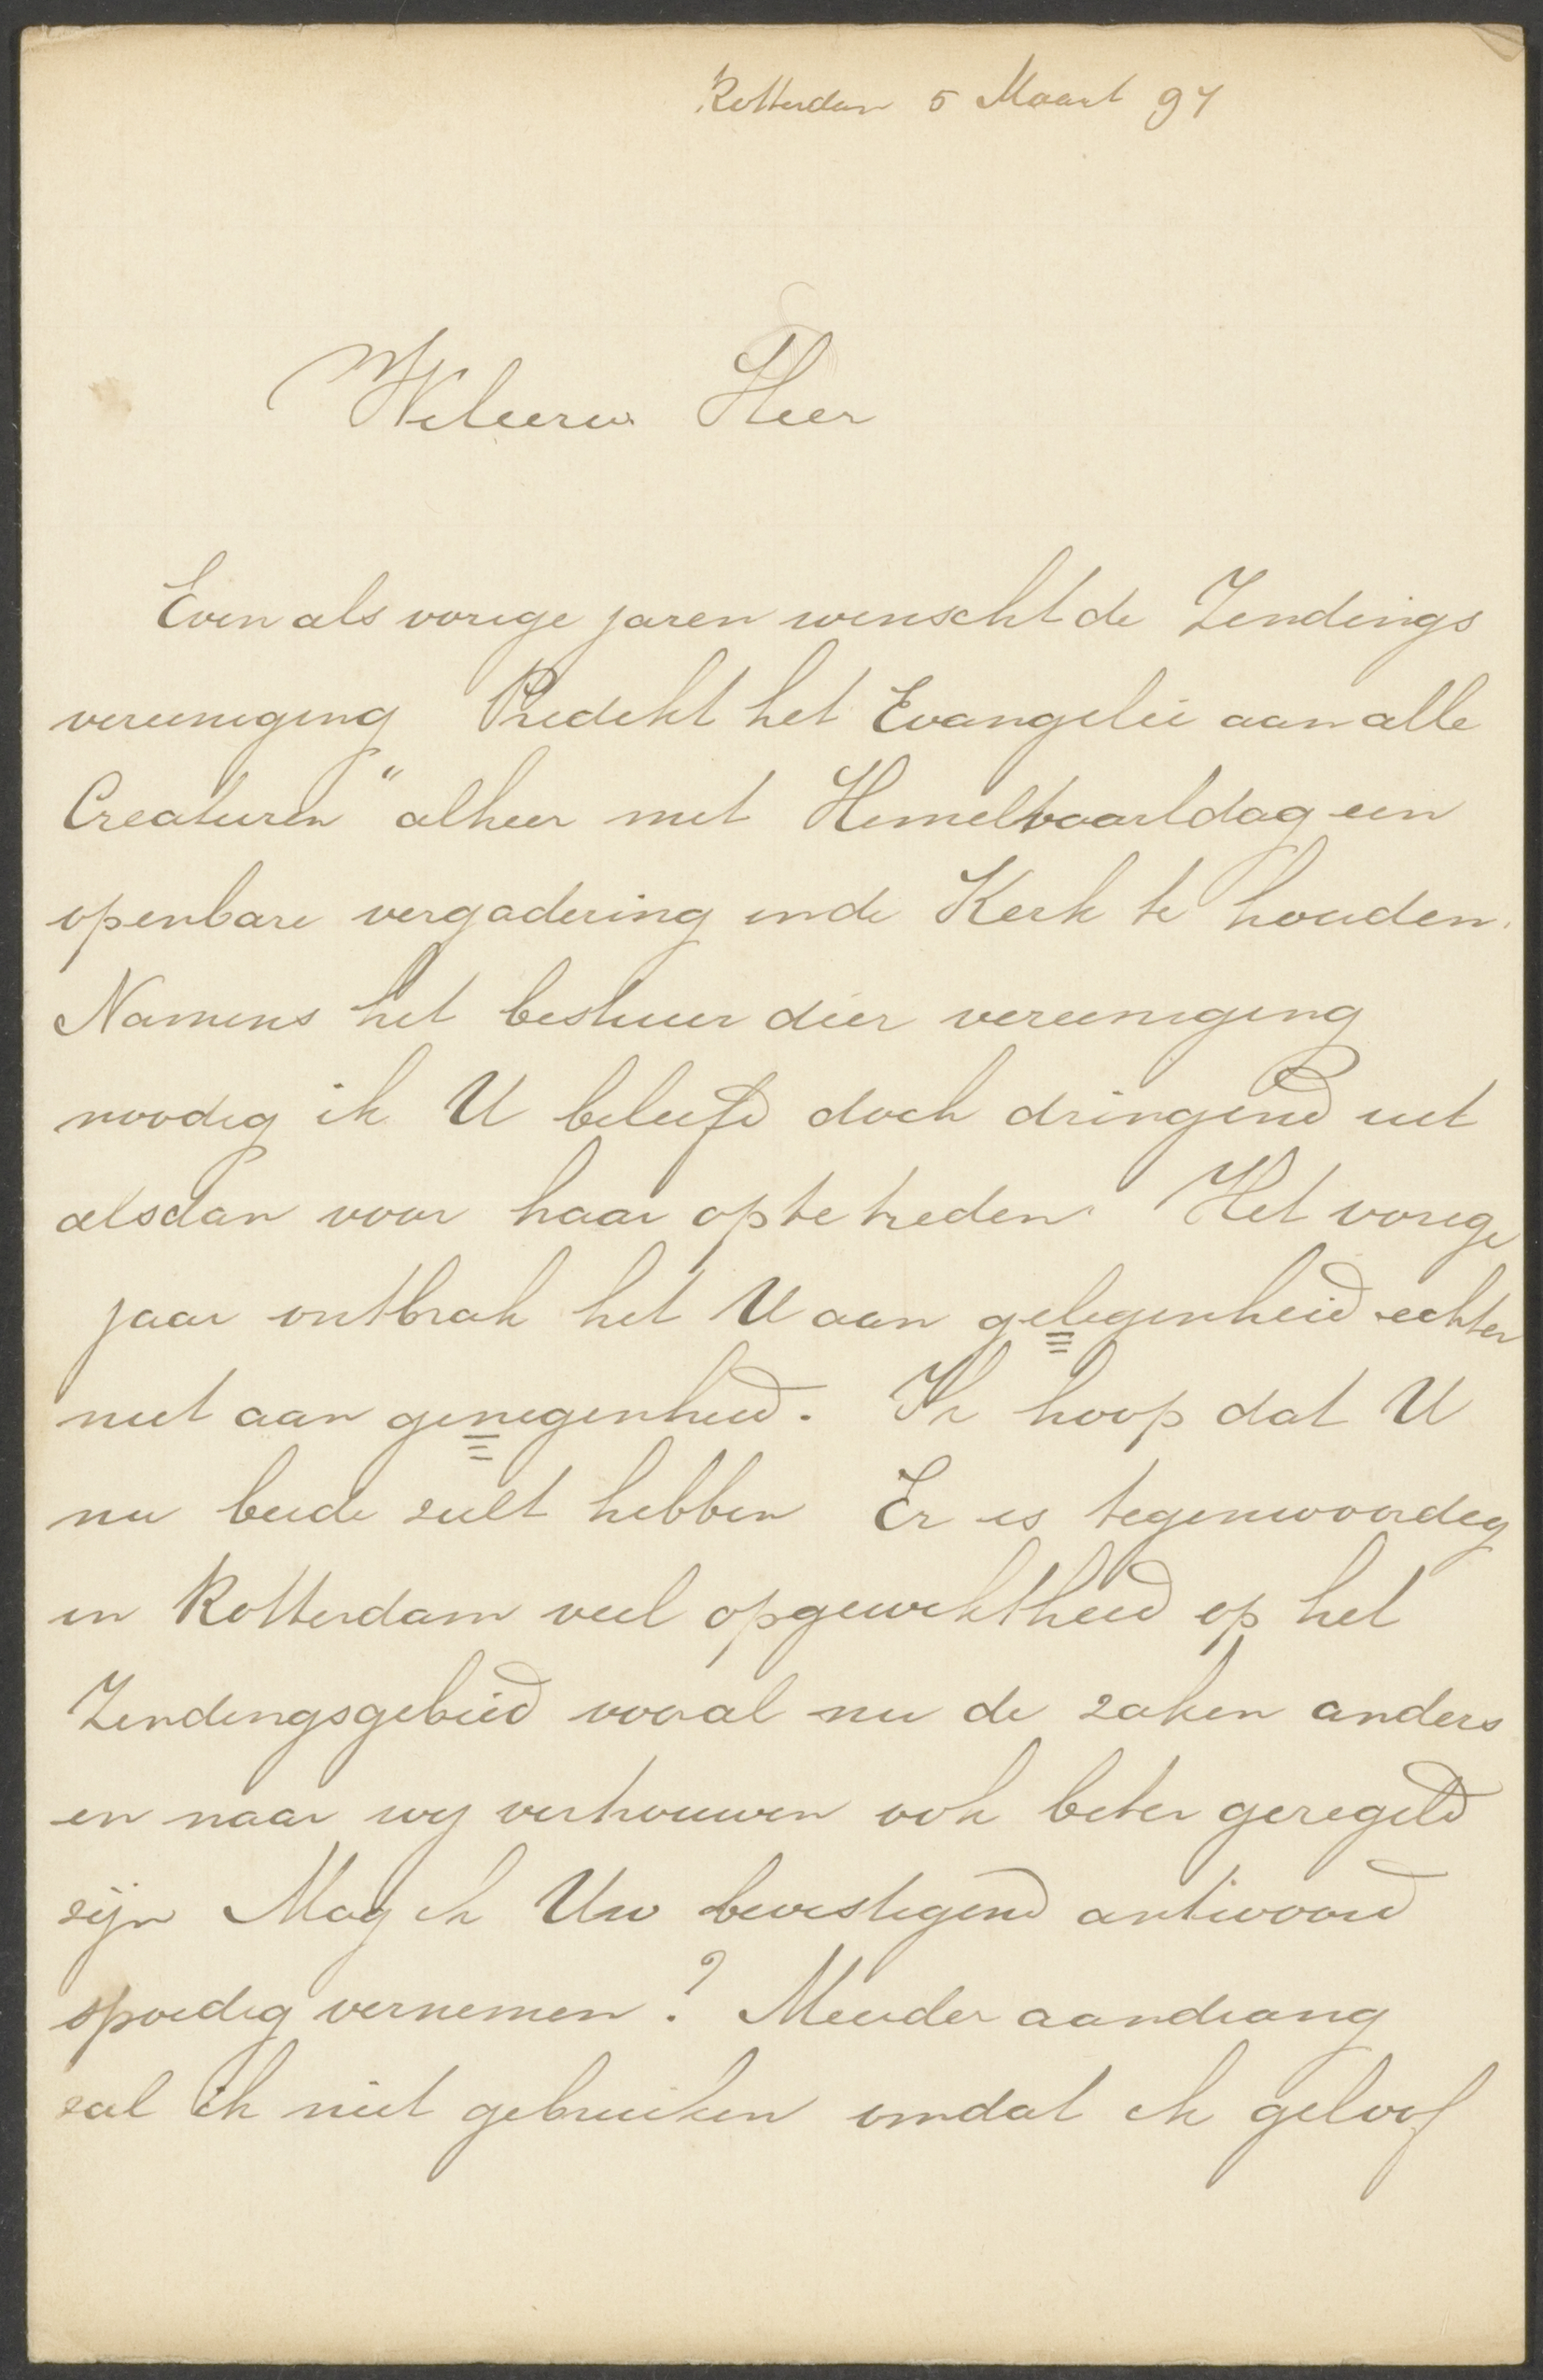 Rotterdam 5 Maart 97
Weleerw. Heer
Even als vorige jaren wenscht de Zendings
vereeniging Predikt het Evangelie aan alle
Creaturen" alhier met Hemelvaartdag een
openbare vergadering in de Kerk te houden.
Namens het bestuur dier vereeniging
noodig ik U beleefd doch dringend uit
alsdan voor haar op te treden. Het vorige
jaar ontbrak het U aan gelegenheid echter
niet aan genegenheid. Ik hoop dat U
nu beide zult hebben Er is tegenwoordig
in Rotterdam veel opgewektheid op het
Zendingsgebied vooral nu de zaken anders
en naar wy vertrouwen ook beter geregeld
zijn Mag ik Uw bevestigend antwoord
spoedig vernemen? Meerder aandrang
zal ik niet gebruiken omdat ik geloof